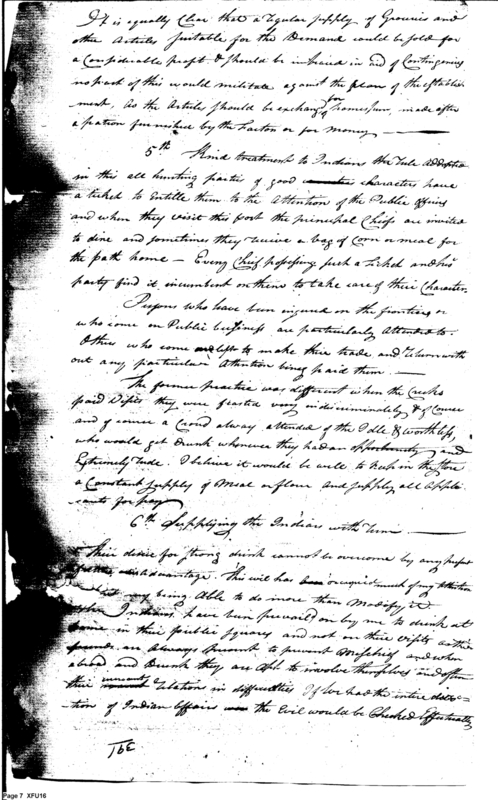 It is equally Clear that a regular supply of Groceries and
other Articles suitable for the Demand could be sold for
a Considerable profit & should be in aid of Contingencies
no part of this would militate against the plan of the establish
ment, As the Articles should be exchangd for homespun, made after
a pattern furnished by the Factor or for money —
5th Kind treatment to Indians the rule adopted
in this all hunting parties of good characters have
a ticket to Entitle them to the Attention of the Public officers
and when they visit this post the principal Chiefs are invited
to dine and sometimes they receive a bag of Corn or meal for
the path home — Every Chief possessing such a Ticket and his
party find it incumbent on them to take care of their Character.
Persons who have been injured on the frontiers or
who come on Public business are particularly Attended to.
Others who come are left to make their trade and return with
out any particular Attention being paid them. —
The former practice was different when the Creeks
paid Visits they were feasted very indiscriminately &
and of course a Crowd always attended of the Idle & worthless,
who would get Drunk whenever they had an opportunity and
Extremely rude. I believe it would be well to keep in the Store
a Constant supply of Meal or flour and supply all Apple
cants for pay
6th Supplying the Indians with Rum —
Their desire for strong drink cannot be overcome by any prospect
advantage. This evil has occupied much of my Attention
my being Able to do more than Modify it
Indians have been prevailed on by me to drink at
in their public Squares and not on their visits as their
are Always present to prevent Mischief and when
abroad and Drunk they are Apt to involve themselves and often
their relation in difficulties If we had the entire direc-
tion of Indian Affairs the Evil would be Checked Effectually
The
Page 7 XFU16